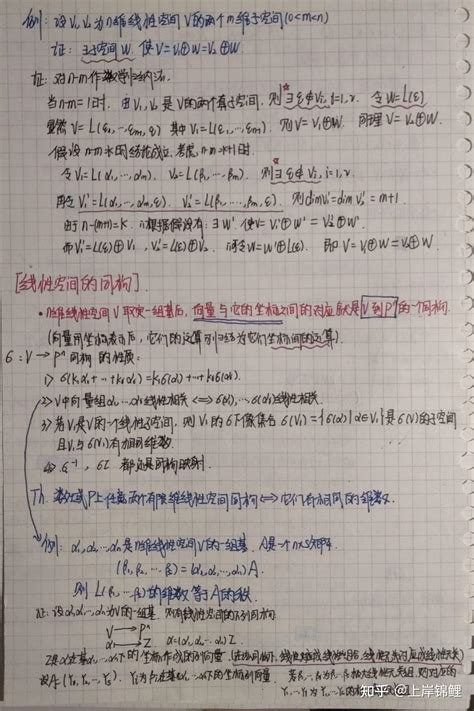 例: 设V₁,V₂为n维线性空间V的两个m维子空间(0<m<n)
证: ∃子空间W, 使V=V₁⊕W=V₂⊕W.
证: 对n-m作数学归纳法.
当n-m=1时, 由V₁,V₂是V的两个真子空间, 则∃ε∉Vᵢ, i=1,2, 令W=L(ε)
显然 V=L(ε₁,…,εm,ε) 其中V₁=L(ε₁,…,εm). 则V=V₁⊕W. 同理V=V₂⊕W.
假设n-m=k时结论成立, 考虑n-m=k+1时.
令V₁=L(α₁,…,αm), V₂=L(β₁,…,βm). 则∃ε∉Vᵢ, i=1,2.
再令V₁'=L(α₁,…,αm,ε), V₂'=L(β₁,…,βm,ε). 则dimV₁'=dimV₂'=m+1.
由于n-(m+1)=k, 根据假设有: ∃W' 使V=V₁'⊕W'=V₂'⊕W'
而V₁'=L(ε)⊕V₁, V₂'=L(ε)⊕V₂. 可令W=W'⊕L(ε). 即V=V₁⊕W=V₂⊕W
[线性空间的同构].
·n维线性空间V取定一组基后, 向量与它的坐标之间的对应就是V到Pⁿ的一个同构.
(向量用坐标表示后, 它们的运算可归结为它们坐标间的运算)
σ: V→Pⁿ同构的性质:
1> σ(k₁α₁+…+krαr)=k₁σ(α₁)+…+krσ(αr)
2> V中向量组α₁,…,αr线性相关⟺σ(α₁),…,σ(αr)线性相关.
3> 若V₁是V的一个线性子空间, 则V₁的σ下像集合σ(V₁)={σ(α)|α∈V₁}是σ(V)的子空间
且V₁与σ(V₁)有相同维数.
4> σ⁻¹, στ 都是同构映射.
Th. 数域P上任意两个有限维线性空间同构⟺它们有相同的维数.
例: α₁,α₂,…,αn是n维线性空间V的一组基. A是一个n×s矩阵.
(β₁,β₂,…,βs)=(α₁,α₂,…,αn)A.
则L(β₁,…,βs)的维数等于A的秩.
证: 设α₁,α₂,…,αn为V的一组基.
V→Pⁿ
α→Z α=(α₁,α₂…αn)Z.
知乎 @上岸锦鲤